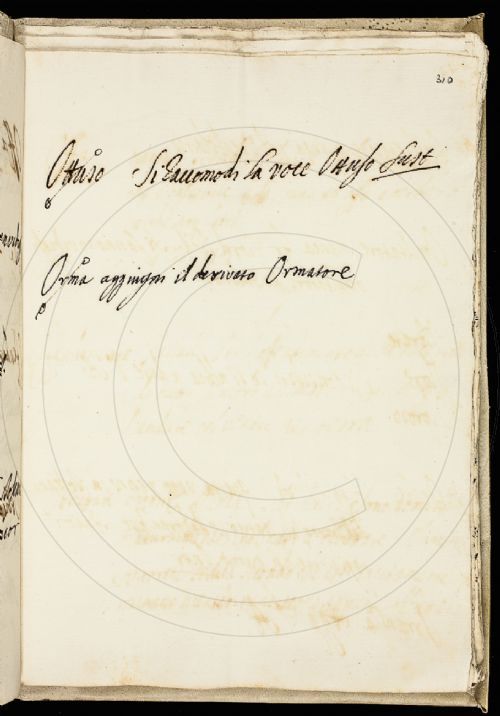 310
Ottuso Si raccomodi la voce Ottuso sust
Orma aggiugni il derivato Ormatore